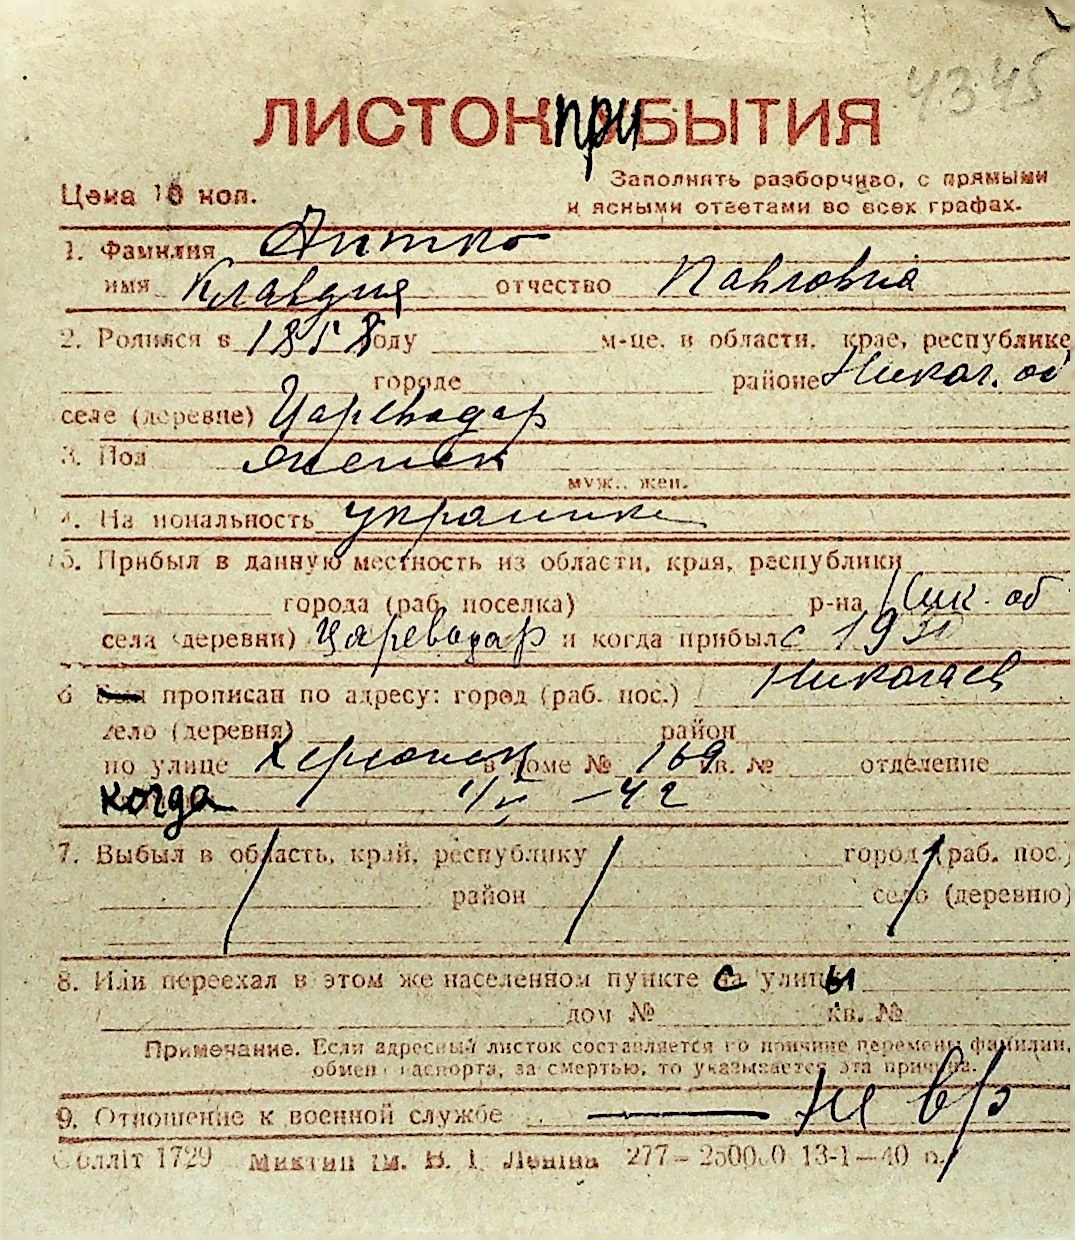 4345
ЛИСТОК при БЫТИЯ
Цена 10 коп.
Заполнять разборчиво, с прямыми
и ясными ответами во всех графах.
1. Фамилия Дитко
имя Клавдия отчество Павловна
2. Родился в 1858 году м-це, в области, крае, республике
городе районе Никол. об
селе (деревне) Цареводар
3. Пол женск
муж., жен.
4. Национальность украинка
5. Прибыл в данную местность из области, края, республики
города (раб. поселка) р-на Ник. об
села (деревни) Цареводар и когда прибыл с 1930
6 прописан по адресу: город (раб. пос.) Николаев
село (деревня) район
по улице Херсонск в доме № 169 кв. № отделение
когда – 42
7. Выбыл в область, край, республику город (раб. пос.)
район село (деревню)
8. Или переехал в этом же населенном пункте с улицы
дом № кв. №
Примечание. Если адресный листок составляется по причине перемены фамилии,
обмен паспорта, за смертью, то указывается эта причина.
9. Отношение к военной службе — не в/о
Облліт 1729 ім. В. І. Леніна 277 – 250000 13-1—40 р.